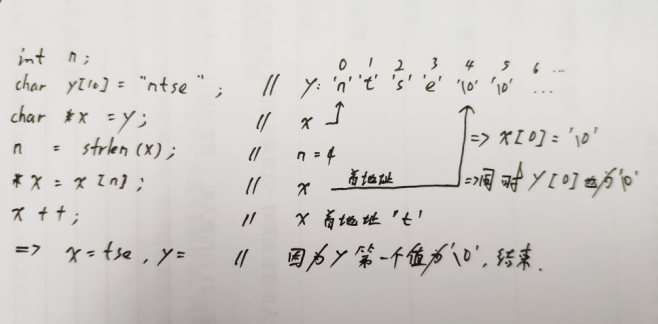 int n;
0 1 2 3 4 5 6 ...
char y[10] = "ntse"; // y: 'n' 't' 's' 'e' '\0' '\0' ...
char *x = y; // x
n = strlen(x); // n = 4
=> x[0] = '\0'
*x = x[n]; // x 首地址 => 同时 y[0] 也为 '\0'
x++; // x 首地址 't'
=> x = tse, y = // 因为 y 第一个值为 '\0', 结束.